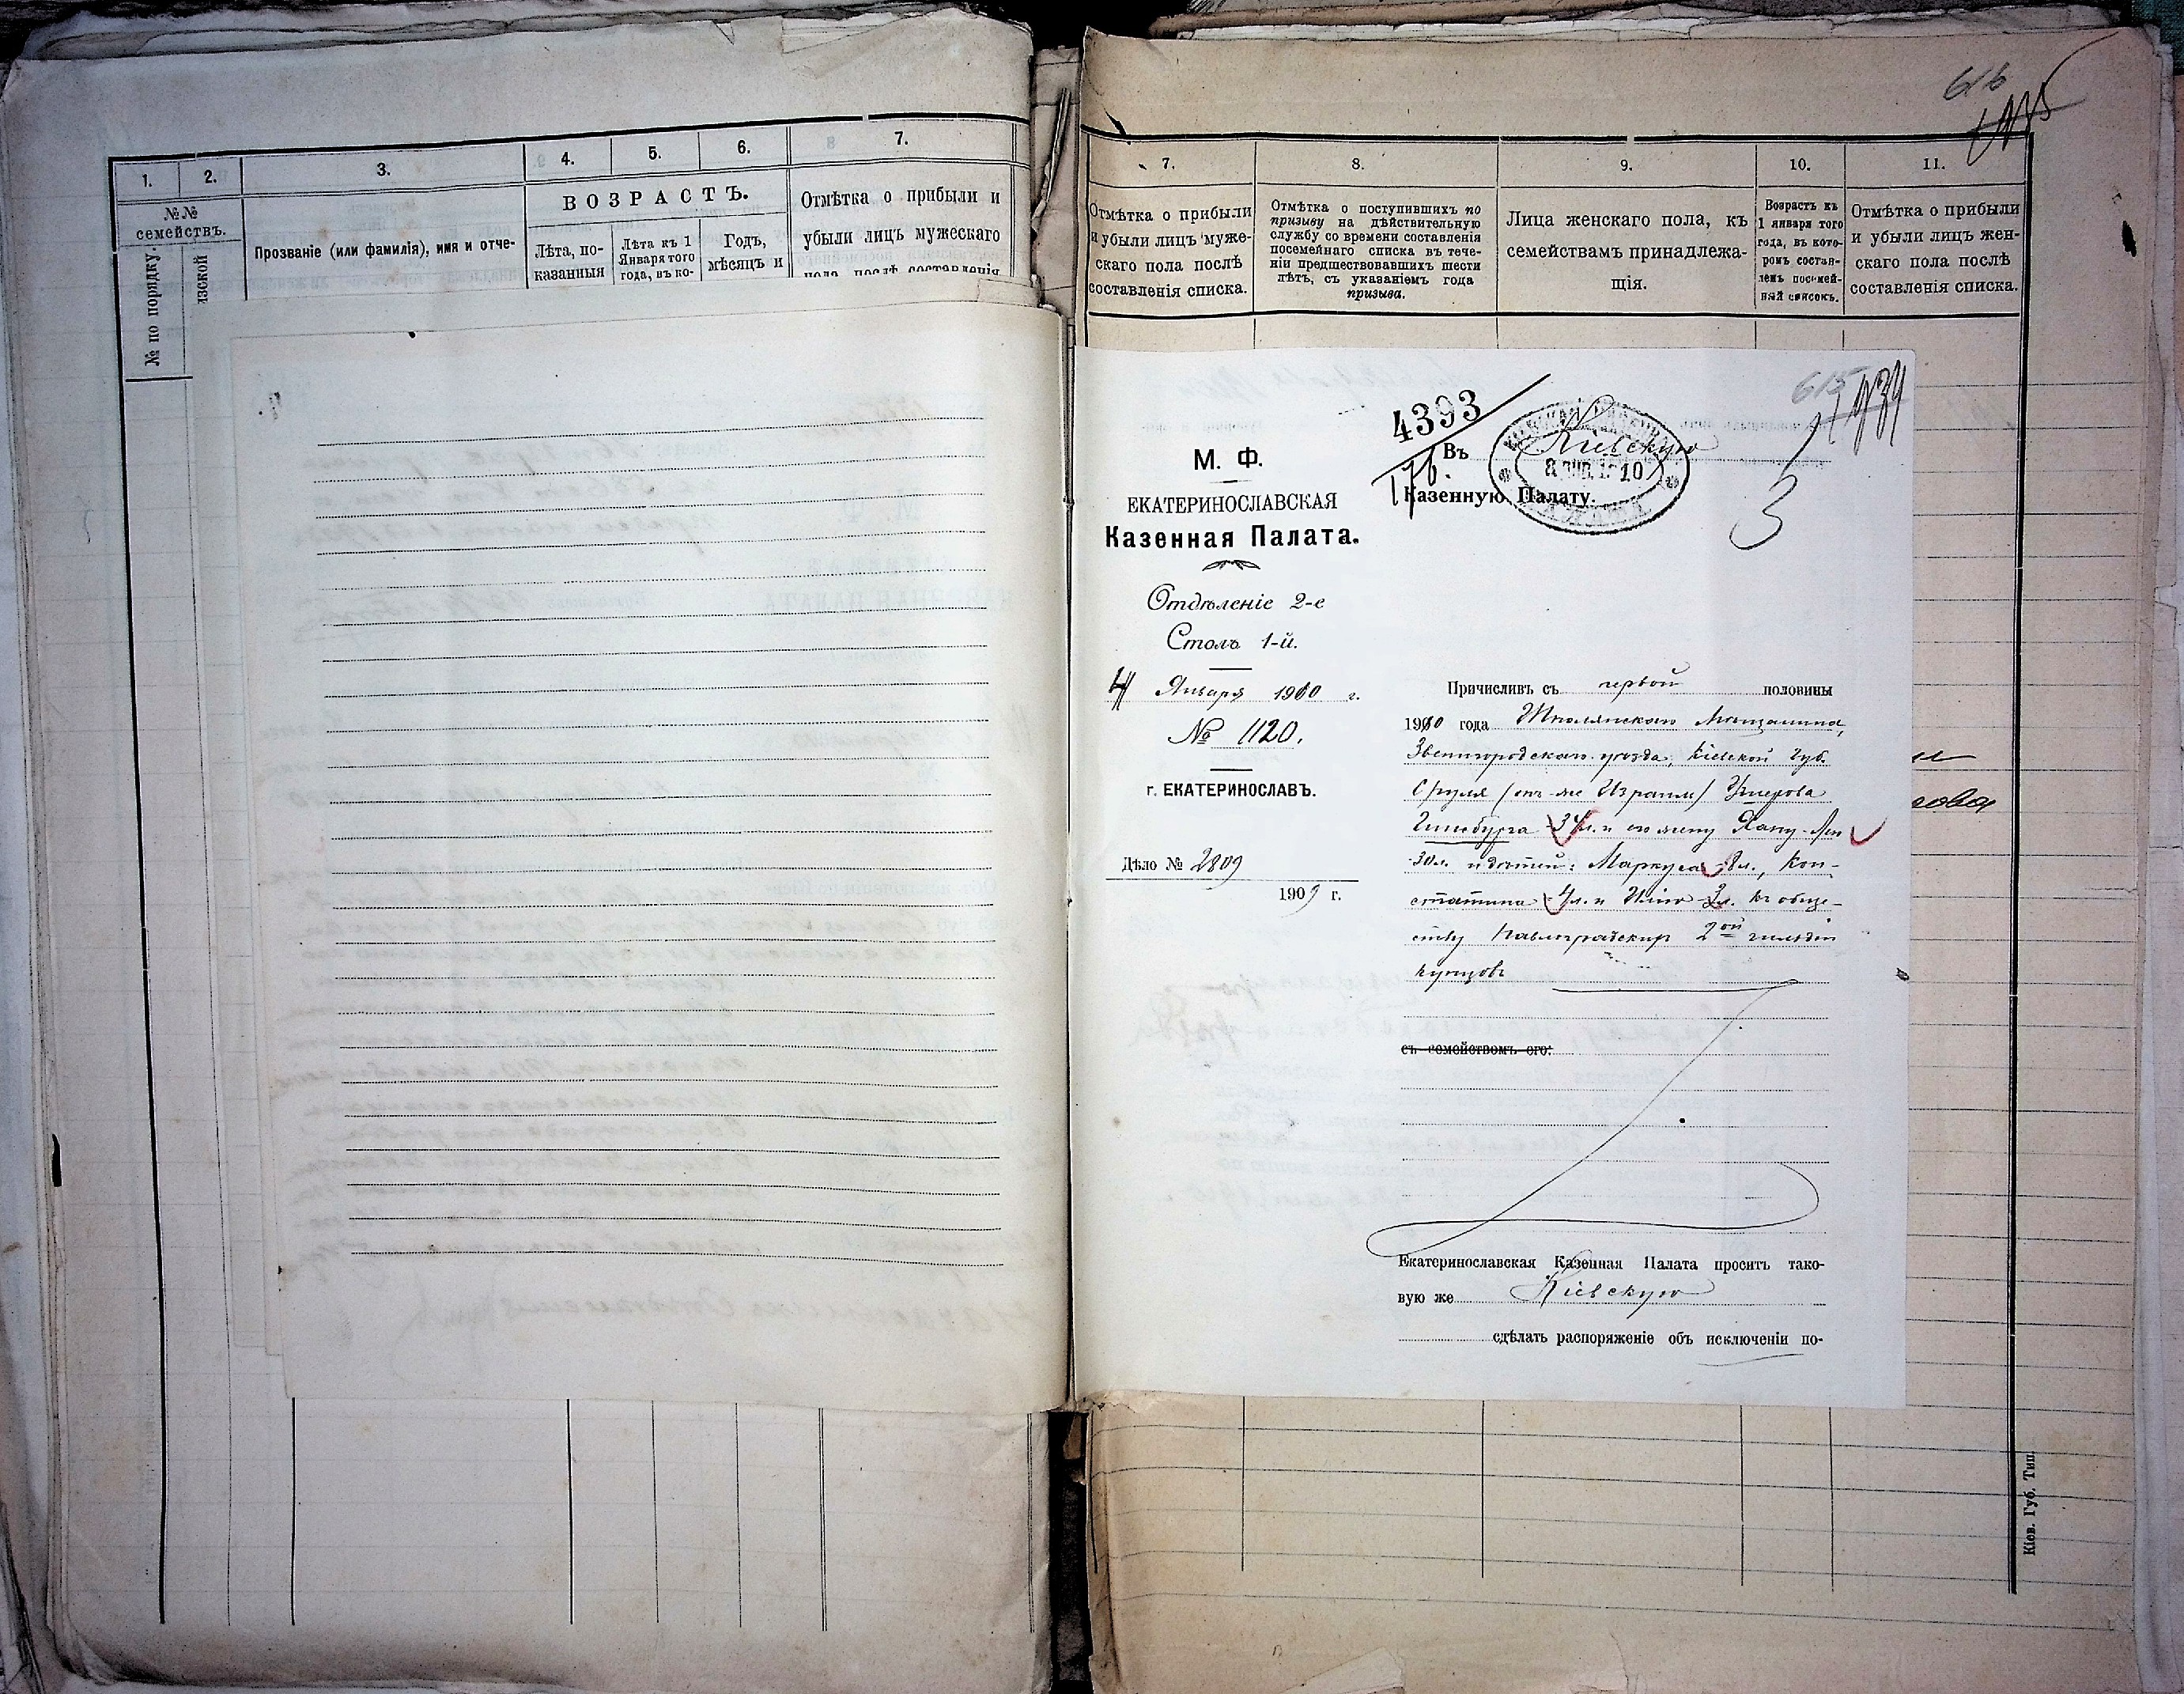 1.
2.
3.
4.
5.
6.
7.
№№ семействъ.
№ по порядку.
Прозваніе (или фамилія), имя и отче-
ВОЗРАСТЪ.
Лѣта, по-
казанныя
Лѣта къ 1
Января того
года, въ ко-
Годъ,
мѣсяцъ и
Отмѣтка о прибыли и
убыли лицъ мужескаго
пола послѣ составленія
616
7.
8.
9.
10.
11.
Отмѣтка о прибыли
и убыли лицъ муже-
скаго пола послѣ
составленія списка.
Отмѣтка о поступившихъ по
призыву на дѣйствительную
службу со времени составленія
посемейнаго списка въ тече-
ніи предшествовавшихъ шести
лѣтъ, съ указаніемъ года
призыва.
Лица женскаго пола, къ
семействамъ принадлежа-
щія.
Возрастъ къ
1 января того
года, въ кото-
ромъ состав-
ленъ посемей-
ный списокъ.
Отмѣтка о прибыли
и убыли лицъ жен-
скаго пола послѣ
составленія списка.
615
4393
М. Ф.
ЕКАТЕРИНОСЛАВСКАЯ
Казенная Палата.
Отдѣленіе 2-е
Столъ 1-й.
4 Января 1910 г.
№ 1120.
г. ЕКАТЕРИНОСЛАВЪ.
Дѣло № 2809
1909 г.
Въ Кіевскую
Казенную Палату.
3
Причисливъ съ первой половины
1910 года Шполянскаго мѣщанина,
Звенигородскаго уѣзда, Кіевской губ.
Сруля (онъ-же Израиль)
Гинсбурга 34 л. и его жену Хану-Лею
30 л. и дѣтей: Маркуса 8 л., Кон-
стантина 4 л. и 3 л. къ обще-
ству Павлоградскихъ 2ой гильдіи
купцовъ
съ семействомъ его:
Екатеринославская Казенная Палата проситъ тако-
вую же Кіевскую
сдѣлать распоряженіе объ исключеніи по-
Кіев. Губ. Тип.